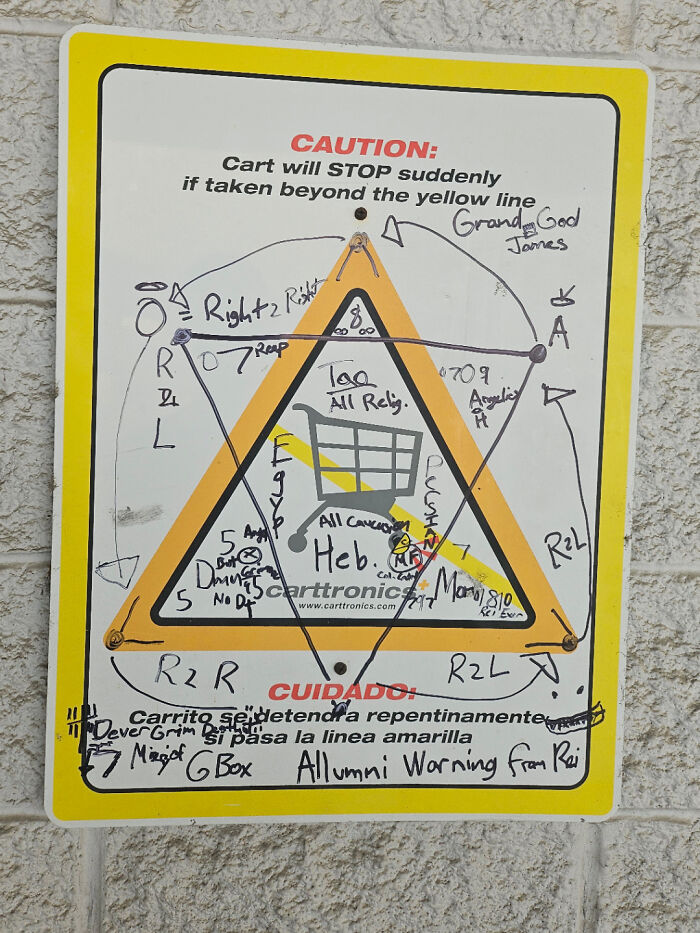 CAUTION:
Cart will STOP suddenly
if taken beyond the yellow line
Grand God
James
Right 2 Right
8
A
R
L
7 Reap
709
Tao
All Relig.
Angelic
H
Egyp
PERSIAN
All Caucasion
5
Heb.
7
R2L
5
No
carttronics
www.carttronics.com
R2R
R2L
CUIDADO:
Carrito se detendra repentinamente
si pasa la linea amarilla
Dever Grim Death
7
GBox
Allumni Warning From Rei